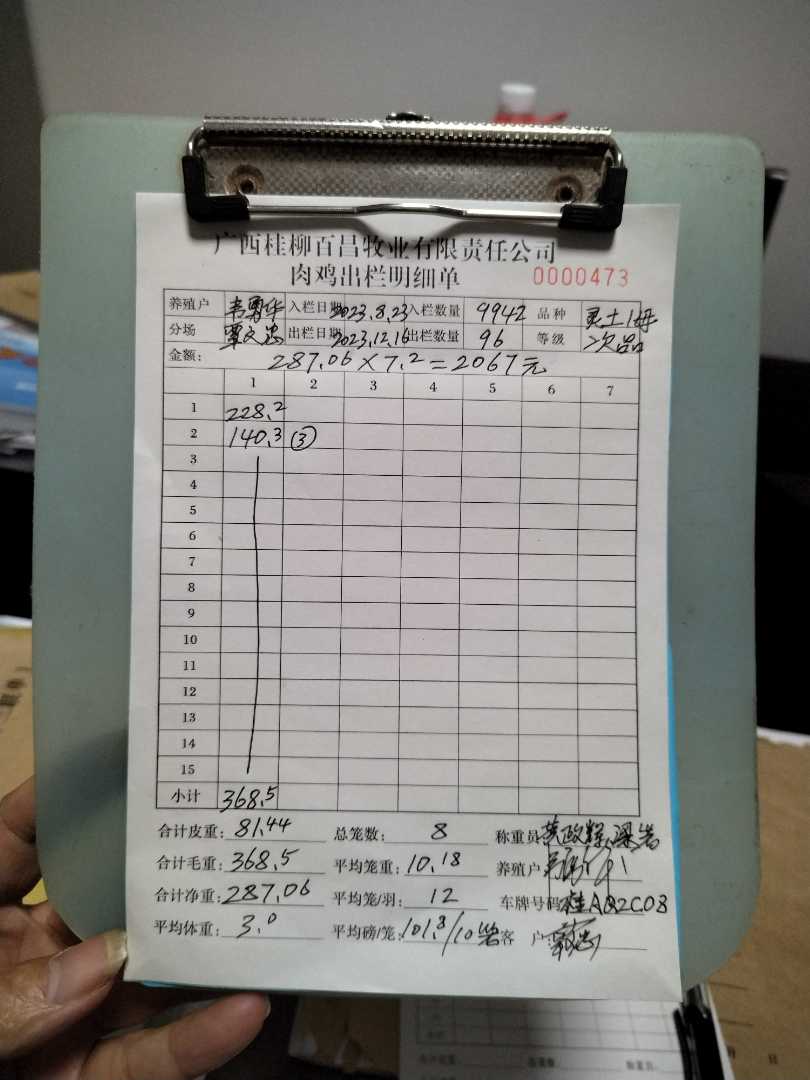 广西桂柳百昌牧业有限责任公司
肉鸡出栏明细单 0000473
养殖户 韦勇华 入栏日期 2023.8.23 入栏数量 9942 品种 灵土1母
分场 覃文忠 出栏日期 2023.12.16 出栏数量 96 等级 次品
金额: 287.06×7.2=2067元
1 2 3 4 5 6 7
1 228.2
2 140.3 ③
3
4
5
6
7
8
9
10
11
12
13
14
15
小计 368.5
合计皮重: 81.44 总笼数: 8 称重员
合计毛重: 368.5 平均笼重: 10.18 养殖户
合计净重: 287.06 平均笼/羽: 12 车牌号码:
平均体重: 3.0 平均磅/笼: 客 户: